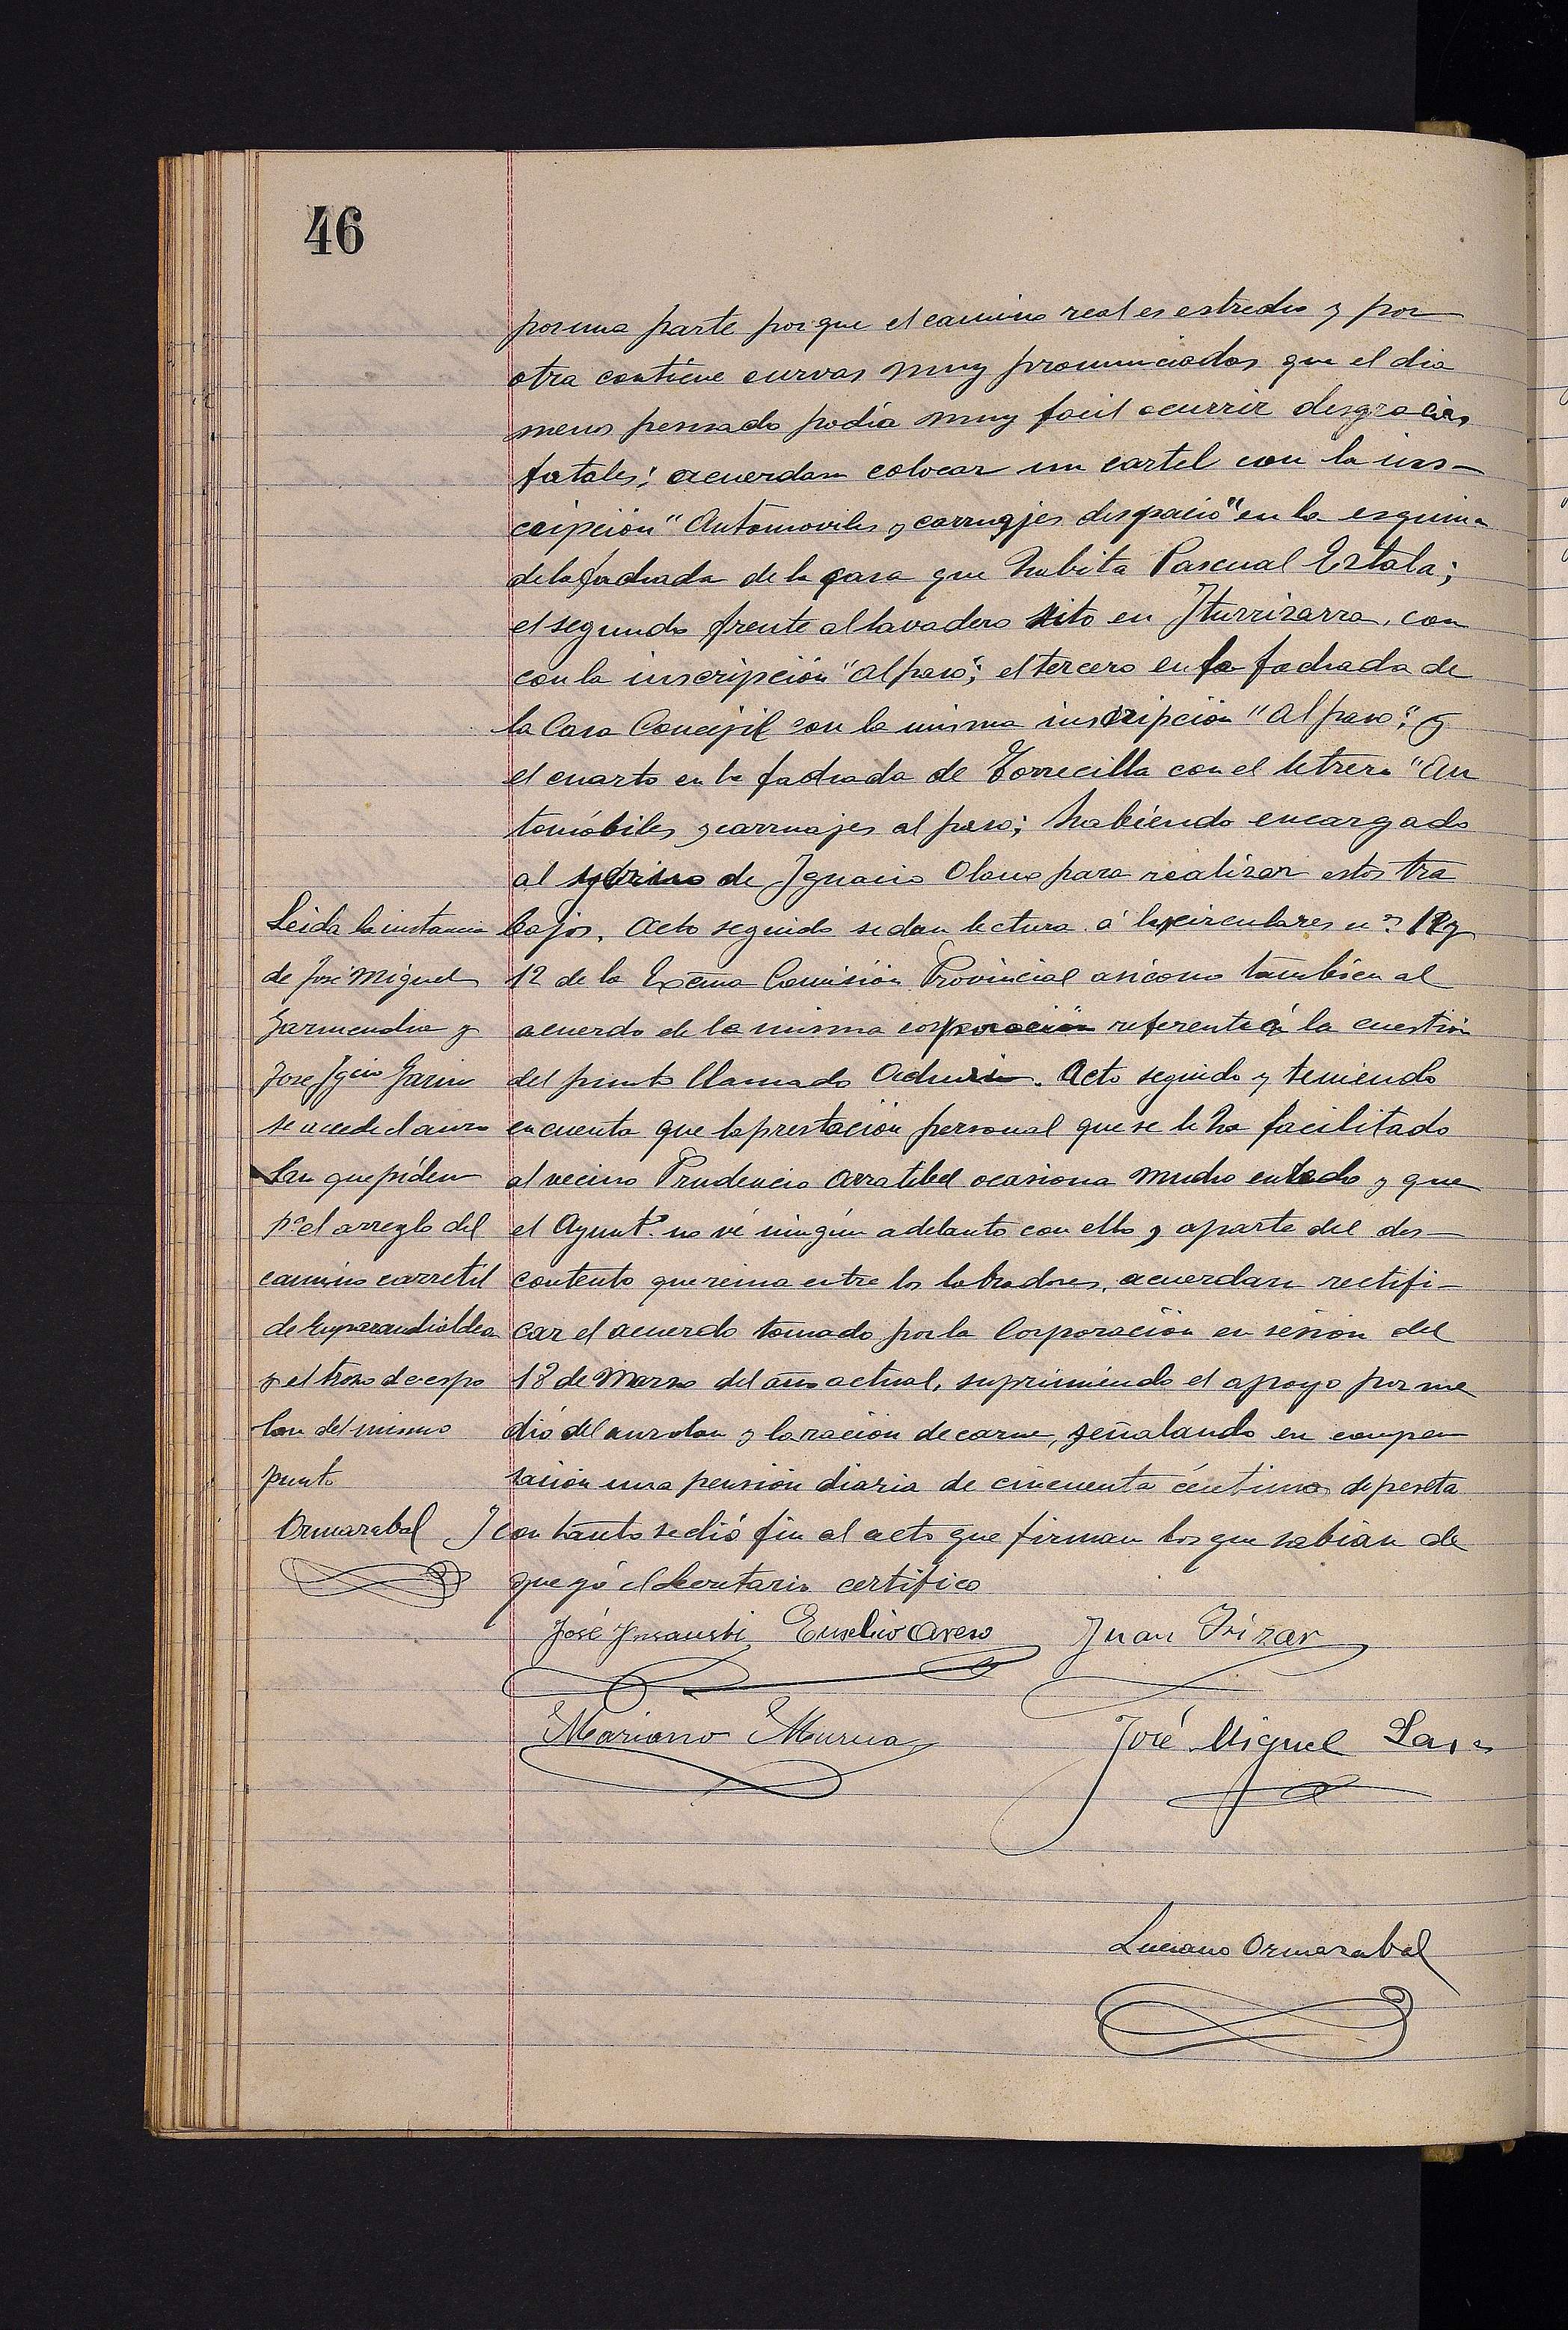 46
por una parte porque el camino real es estrecho y por
otra contiene curvas muy pronunciadas que el dia
menos pensado podía muy facil ocurrir desgracias
fatales; acuerdan colocar un cartel con la ins-
cripción "Automoviles y carruajes despacio" en la esquina
de la fachada de la casa que habita Pascual Estala;
el segundo frente al lavadero sito en Iturrizarra, con
con la inscripción "al paso"; el tercero en la fachada de
la Casa Concejil con la misma inscripción "Al paso"; y
el cuarto en la fachada de Torrecilla con el letrero "Au
tomóbiles y carruajes al paso; habiendo encargado
al de Ignacio Olano para realizar estos tra
bajos. Acto seguido se dan lectura á las circulares nº 11 y
12 de la Excma Comisión Provincial asi como tambien al
acuerdo de la misma corporación referente á la cuestión
del punto llamado Aduriz. Acto seguido y teniendo
en cuenta que la prestación personal que se le ha facilitado
al vecino Prudencio Arratibel ocasiona mucho enfado y que
el Ayuntº. no vé ningún adelanto con ello, y aparte del des-
contento que reina entre los labradores, acuerdan rectifi-
car el acuerdo tomado por la Corporación en sesion del
18 de Marzo del año actual, suprimiendo el apoyo por me
dio del auzolan y la ración de carne, señalando en compen
sación una pensión diaria de cincuenta céntimos de peseta
Y con tanto se dió fin al acto que firman los que sabian de
que yó el Secretario certifico
Leida la instancia
de José Miguel
Garmendia y
Jose Igcio Garin
se accede el auzo
lan que piden
pª el arreglo del
camino carretil
de Euparandialdea
y el trozo de espo
lon del mismo
punto
Ormazabal
José Insausti Eusebio Areso Juan Irizar
Mariano Murua José Miguel Lasa
Luciano Ormazabal